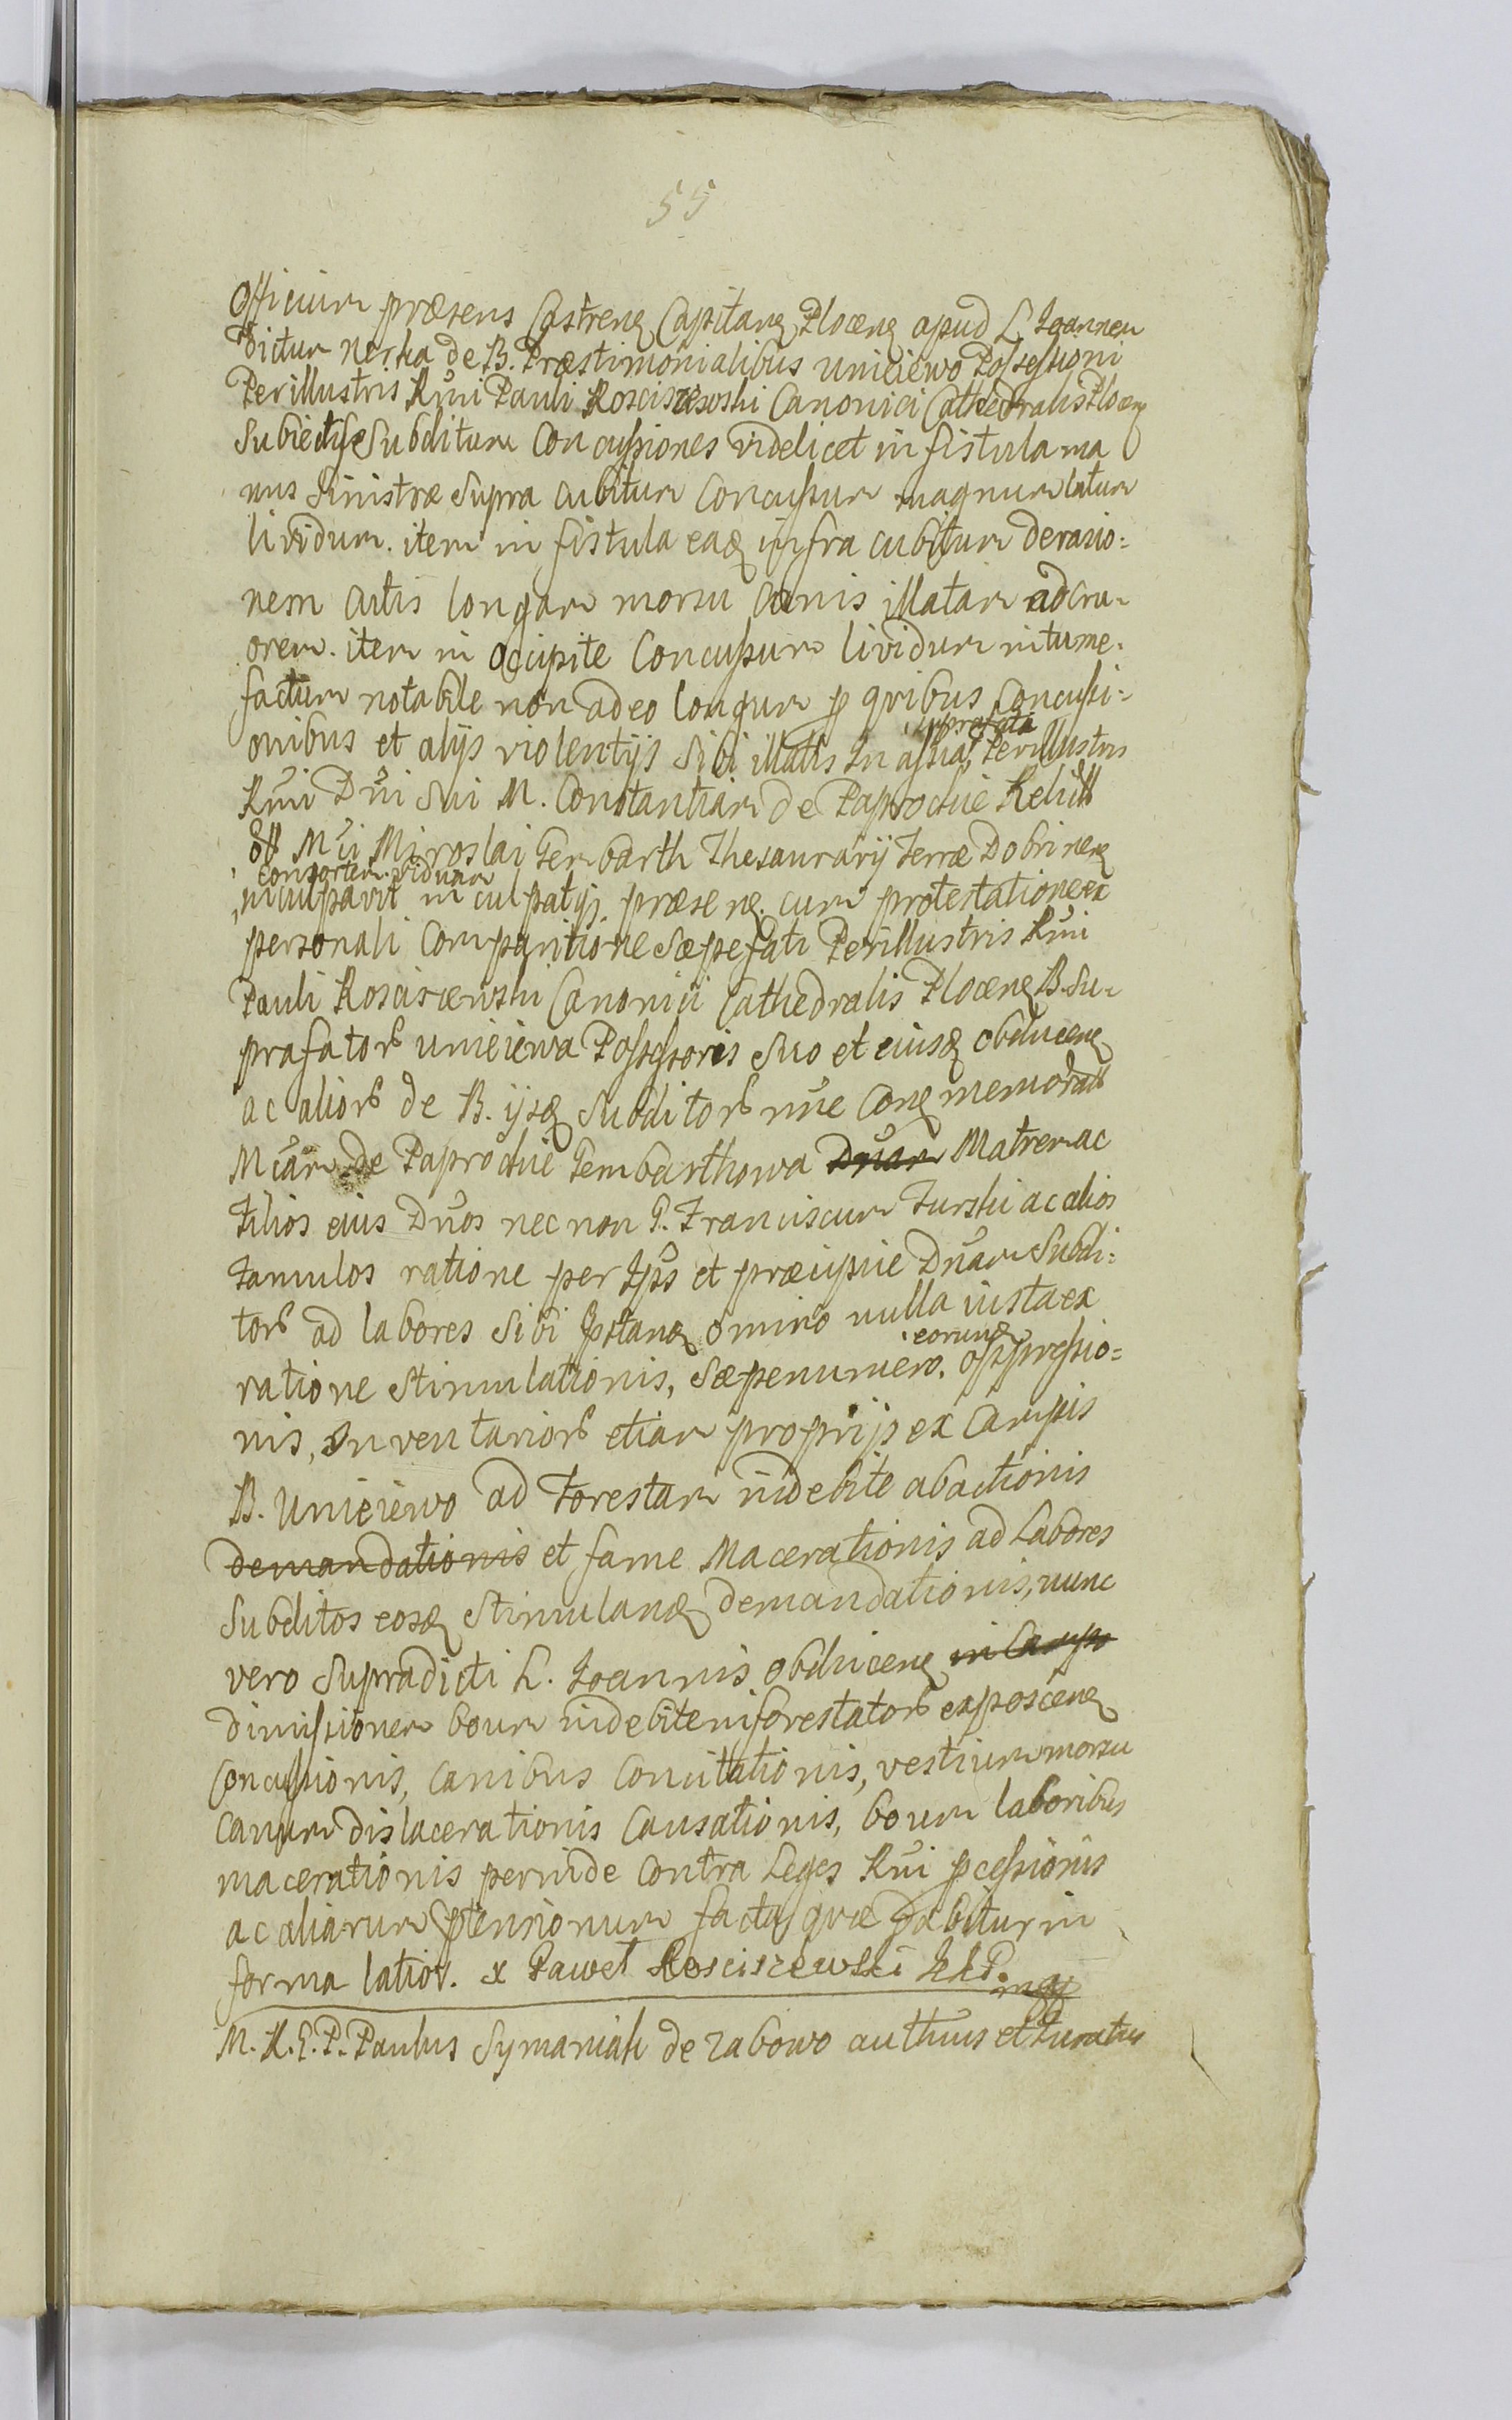 55
Officium præsens Castren Capitan Plocen apud L. Joannem
Dictum neska de B. Præstimonialibus Unieiewo Possessioni
Perillustris Rndi Pauli Rosciszewski Canonici Cathedralis Plocen
Subiectis Subditum Concussiones videlicet in fistula ma
nus Sinistræ Supra cubitum Concussum magnum latum
lividum. item in fistula eaq infra cubitum derasio:
nem cutis longam morsu Canis illatam ad cru-
orem. item in occipite Concussum lividum intume.
factum notabile non adeo longum p quibus Concussi:
onibus et alijs violentijs Sibi illatis in assia Perillustris
suprafata
Rndi Dni Sui M. Constantiam de Paprockie Relict
ol Mci Miroslai Gembarth Thesaurarij Terræ Dobrinen
consortem viduam
inculpavit in culpatq præsen. cum protestatione ex
personali Comparitione Sæpefati Perillustris Rndi
Pauli Rosciszewski Canonici Cathedralis Plocen B. Su-
prafator Unieiewa Possessoris Suo et eiusq obducen
ac alior de B. ijsq Subditor nne Con memorat
Mcam de Paprockie Gembarthowa Dnam Matrem ac
Filios eius Dnos nec non G. Franciscum Turski ac alios
Famulos ratione per Ips et præcipue Dnam Subdi:
tor ad labores Sibi pstan omino nulla iusta ex
ratione Stimulationis, Sæpenumero. oppressio=
eorunq
nis, Inventarior etiam proprijs ex Campis
B. Unieiewo ad Forestam indebite abactionis
demandationis et fame Macerationis ad Labores
Subditos eosq Stimulanq demandationis, nunc
vero Supradicti L. Joannis obducen in Campo
dimissionem boum indebite inforestator exposcen
Concussionis, Canibus Concitationis, vestium morsu
Canum dislacerationis Causationis, boum laboribus
macerationis perinde Contra Leges Rndi pcessionis
ac aliarum ptensionum facta quæ dabitur in
forma latior. x Paweł Rosciszewski KKP. mpp
M. R. G. P. Paulus Symaniak de Zabowo authcus et Iuratus